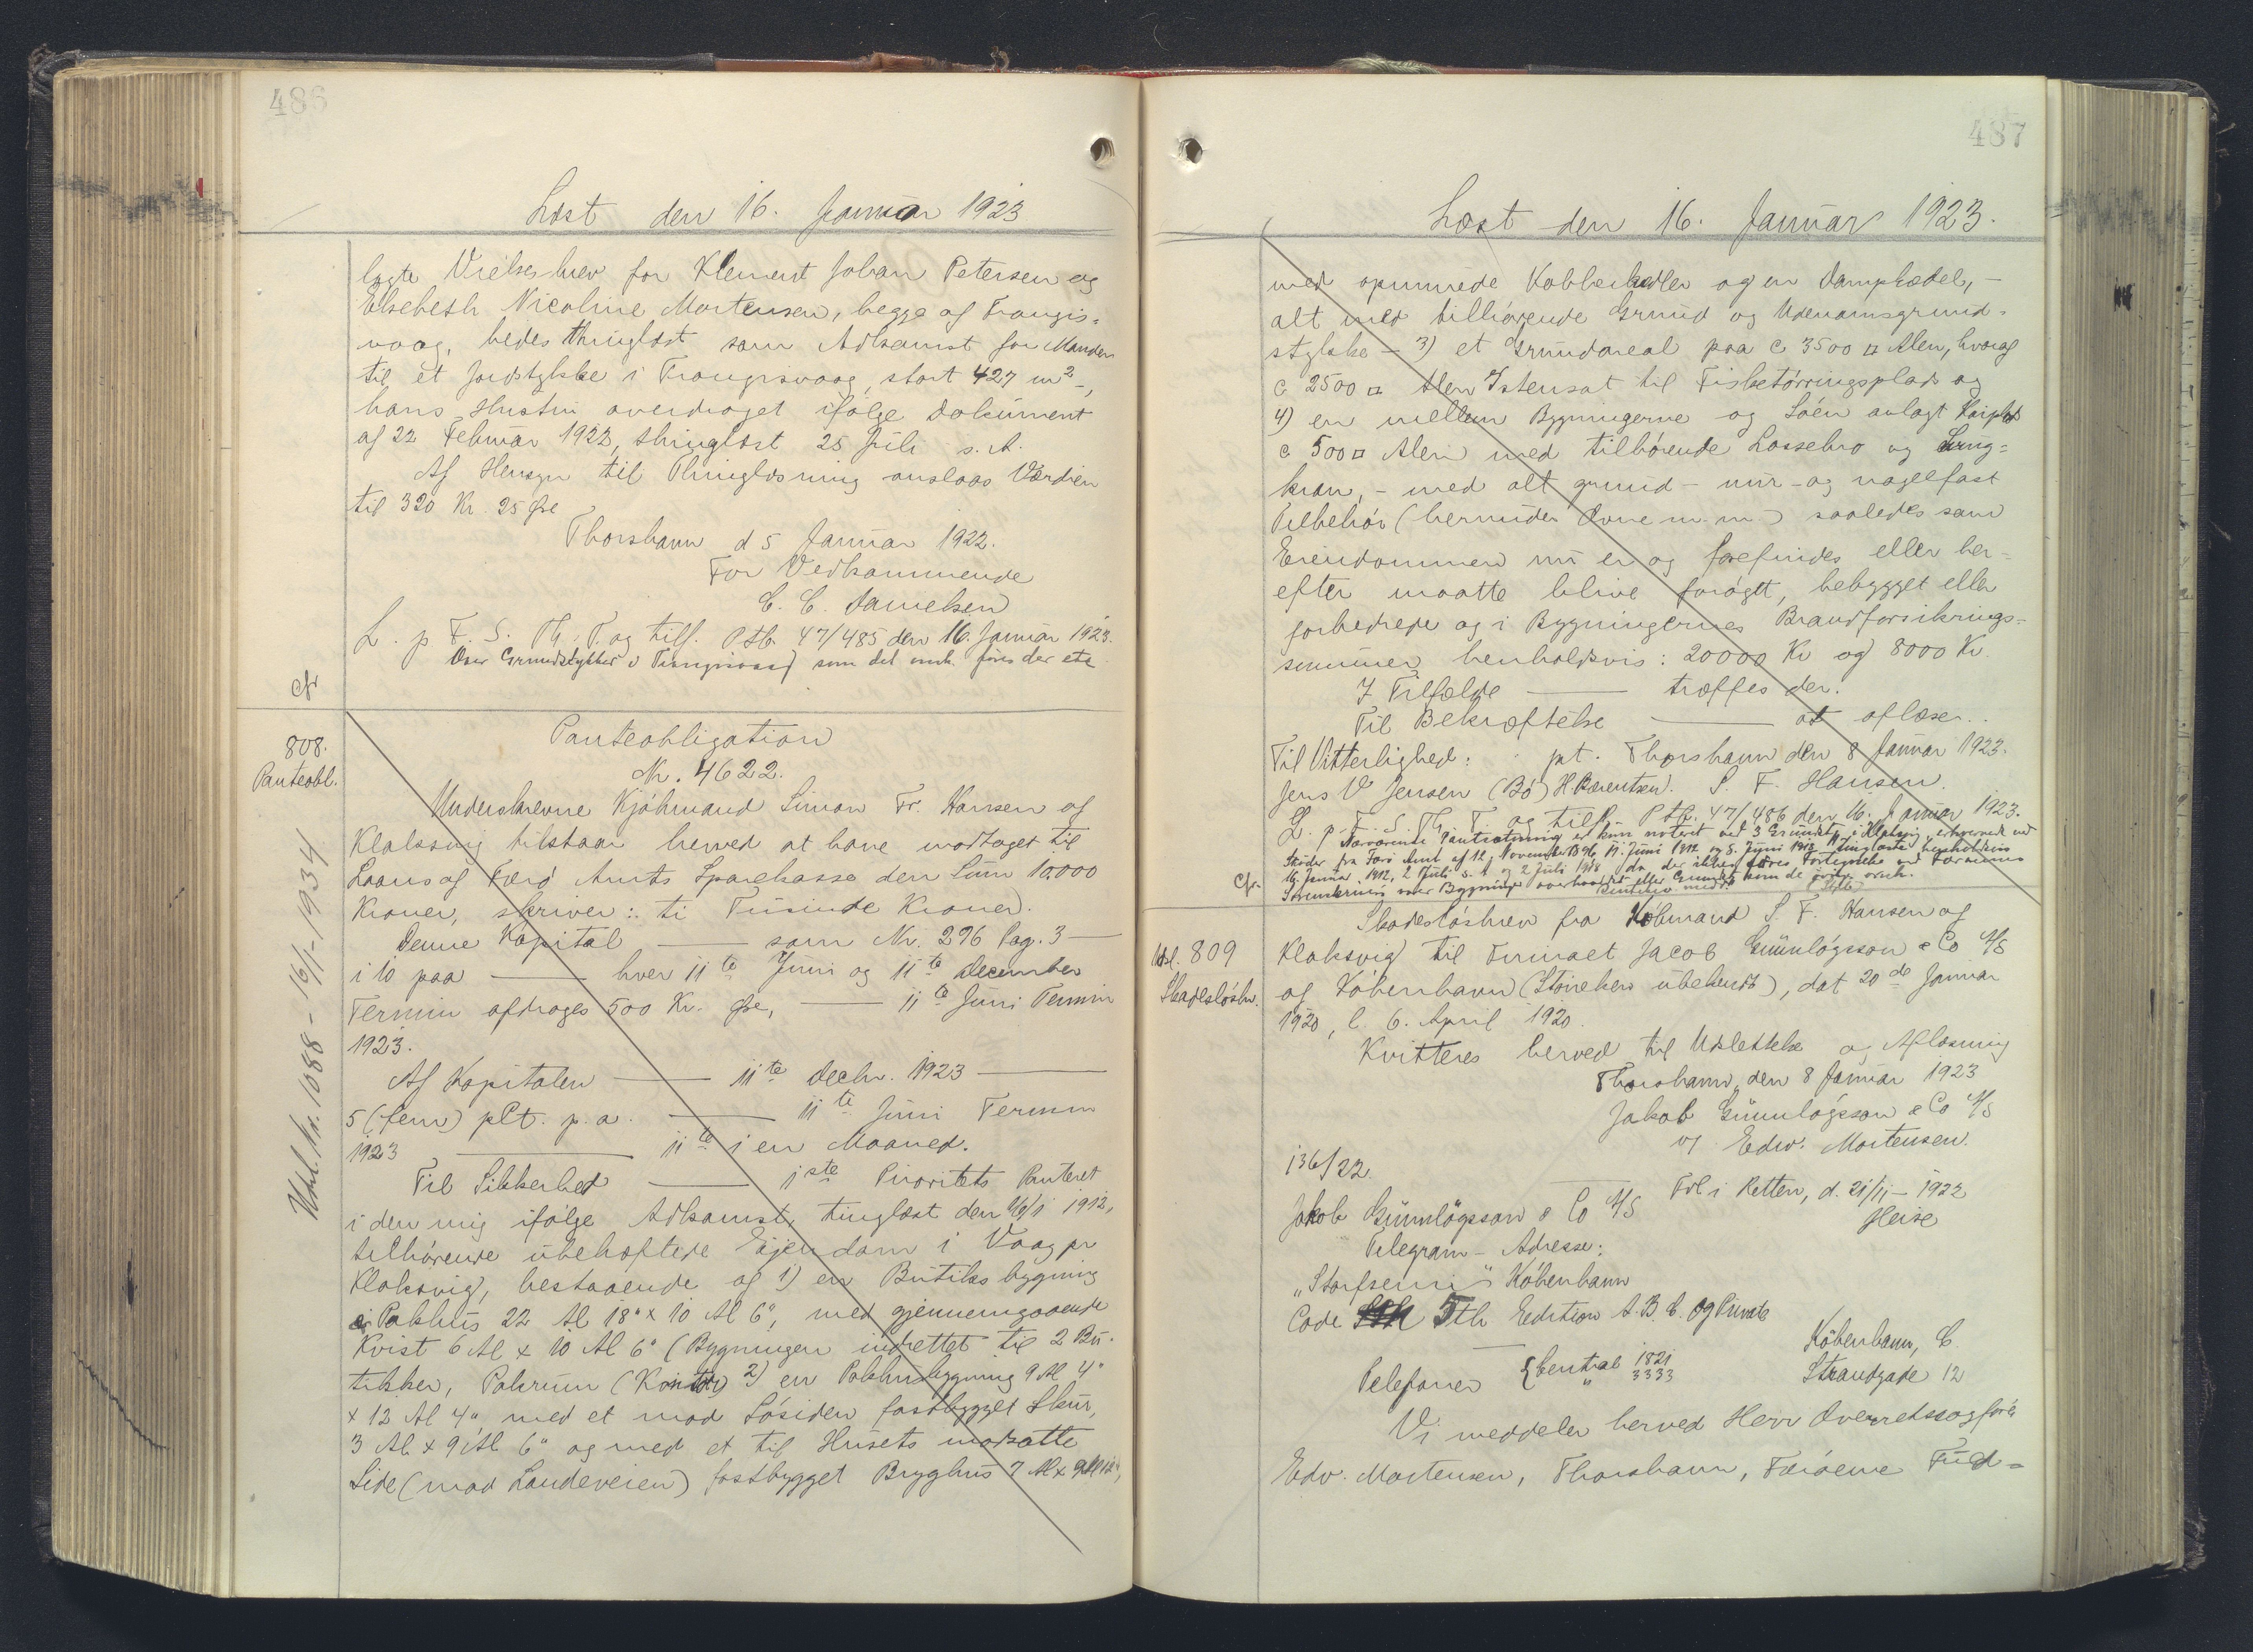 486
Læst den 16. Januar 1923
lagte Vielsesbrev for Klement Johan Petersen og
Elsebeth Nicoline Mortensen, begge af Trangis-
vaag, bedes thinglæst som Adkomst for Manden
til et Jordstykke i Trangisvaag, stort 427 m² -,
hans Hustru overdraget ifølge Dokument
af 22 Februar 1922, thinglæst 25 Juli s. A.
Af Hensyn til Thinglæsning anslaas Værdien
til 320 Kr. 25 Øre
Thorshavn d 5 Januar 1922.
For Vedkommende
C. C. Danielsen
L. p F. S. Th. T. og tilf. Ptb. 47/485 den 16. Januar 1923.
Over Grundstykket i Trangisvaag som det omh. føres der ete
cfr
808.
Panteobl.
Panteobligation
Nr. 4622.
Underskrevne Kjøbmand Simon Fr. Hansen af
Klaksvig tilstaar herved at have modtaget til
Laans af Færø Amts Sparekasse den Sum 10.000
Kroner, skriver: ti Tusinde Kroner.
Denne Kapital — som Nr. 296 Pag. 3 —
i 10 paa — hver 11te Juni og 11te December
Termin afdrages 500 Kr. Øre, — 11te Juni Termin
1923.
Af Kapitalen — 11te Decbr. 1923 —
5 (fem) pCt. p. a. — 11te Juni Termin
1923 — 11te i en Maaned.
Til Sikkerhed — 1ste Prioritets Panteret
i den mig ifølge Adkomst, tinglæst den 16/1 1912,
tilhørende ubehæftede Ejendom i Vaag pr
Klaksvig, bestaaende af 1) en Butiksbygning
Pakhus 22 Al 18" x 10 Al 6", med gjennemgaaende
Kvist 6 Al x 10 Al 6" (Bygningen indrettet til 2 Bu-
tikker, Pakrum (Kontor) 2) en Pakhusbygning 9 Al 4"
x 12 Al 4" med et mod Søsiden fastbygget Skur,
3 Al x 9 Al 6" og med et til Husets modsatte
Side (mod Landeveien) fastbygget Bryghus 7 Al x 9 Al 12",
Udsl. Nr. 1088 - 16/1-1934
487
Læst den 16. Januar 1923.
med opmurede Kobberkedler og en Dampkedel, -
alt med tilhørende Grund og Udenomsgrund-
stykke - 3) et Grundareal paa c 3500 □ Alen, hvoraf
c 2500 □ Alen Istensat til Fisketørringsplads og
4) en mellem Bygningerne og Søen anlagt Kaiplads
c 500 □ Alen med tilhørende Lossebro og Sving-
kran, - med alt grund- mur- og nagelfast
Tilbehør (herunder Ovne m. m) saaledes som
Eiendommen nu er og forefindes eller her-
efter maatte blive forøget, bebygget eller
forbedrede og i Bygningernes Brandforsikrings-
summer henholdsvis: 20000 Kr og 8000 Kr.
I Tilfælde — træffes der.
Til Bekræftelse — at aflæse.
Til Vitterlighed: pt. Thorshavn den 8 Januar 1923.
Jens V Jensen (Bø) H. Berentsen. S. F. Hansen.
L. p. F. S. Th. T. og tilf. Ptb. 47/486 den 16. Januar 1923.
Nærværende Pantsætning er kun noteret ved 3 Grundst. i Klaksvig, erhvervede ved
Skøder fra Færø Amt af 12. November 1896, 11. Juni 1912 og 8. Juni 1918, tinglæste henholdsvis
16. Januar 1912, 2 Juli s. A. og 2 Juli 1918, da der ikke føres Fortegnelse ved Færøernes
Sorenskriveri over Bygninger overhovedet eller Grunde som de øvrige omh.
cfr.
Udsl. 809
Skadesløsbr.
Skadesløsbrev fra Købmand S. F. Hansen af
Klaksvig til Firmaet Jacob Gunnløgsson & Co A/S
af København (Størrelsen ubekendt), dat 20de Januar
1920, l. 6. April 1920.
Kvitteres herved til Udslettelse og Aflæsning
Thorshavn, den 8 Januar 1923
Jakob Gunnløgsson & Co A/S
v/ Edw. Mortensen.
136/22.
Frl i Retten, d. 21/11 - 1922
Heise
Jakob Gunnløgsson & Co A/S
Telegram - Adresse:
København
Code 5th Eedition A.B.C. og Private
Telefoner {Central 1821
" 3333
København, C
Strandgade 12
Vi meddeler herved Herr Overretssagfører
Edw. Mortensen, Thorshavn, Færøerne Fuld-